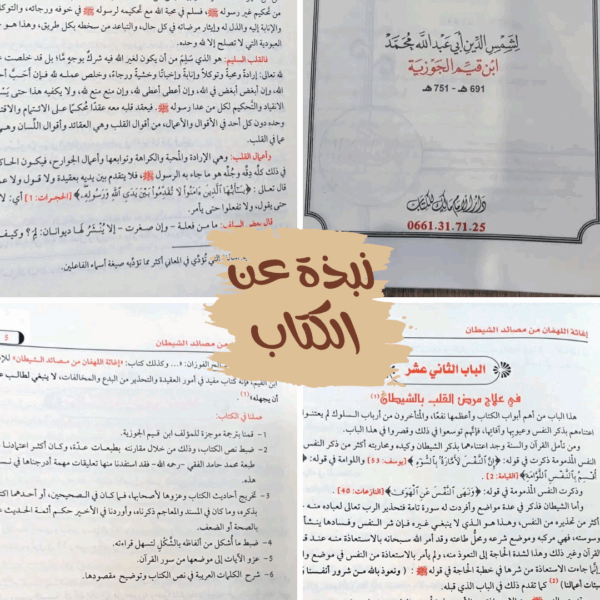 من تحكيم غير رسوله ﷺ، فسلم في محبة الله مع تحكيمه لرسوله ﷺ في خوفه ورجائه، والتوكل
والإنابة إليه والذل له وإيثار مرضاته في كل حال، والتباعد من سخطه بكل طريق، وهذا هو
العبودية التي لا تصلح إلا لله وحده.
فالقلب السليم: هو الذي سَلِمَ من أن يكون لغير الله فيه شركٌ بوجهٍ مَّا؛ بل قد خلصت
لله تعالى: إرادةً ومحبةً وتوكلاً وإنابةً وإخباتًا وخشيةً ورجاءً، وخلص عمله لله فإن أَحَبَّ
لله، وإن أبغض أبغض في الله، وإن أعطى أعطى لله، وإن منع منع لله، ولا يكفيه هذا حتى
الانقياد والتَّحكيم لكل من عدا رسوله ﷺ. فيعقد قلبه معه عقدًا مُحكمًا على الائتمام والاقتداء
وحده دون كل أحد في الأقوال والأعمال، من أقوال القلب وهي العقائد وأقوال اللِّسان وهي
عما في القلب.
وأعمال القلب: وهي الإرادة والمحبة والكراهة وتوابعها وأعمال الجوارح، فيكون
في ذلك كلِّه دِقِّه وجُلِّه هو ما جاء به الرسول ﷺ، فلا يتقدم بين يديه بعقيدة ولا قول ولا
قال تعالى: ﴿يَـٰٓأَيُّهَا ٱلَّذِينَ ءَامَنُوا۟ لَا تُقَدِّمُوا۟ بَيْنَ يَدَىِ ٱللَّهِ وَرَسُولِهِۦ﴾ [الحجرات: 1] أي: لا
حتى يقول، ولا تفعلوا حتى يأمر.
قال بعض السلف: ما من فعلة – وإن صغرت – إلا يُنْشَرُ لها ديوانان: لِمَ؟ وكيف
التي تُؤدِّي في المعاني أكثر مما تؤديه صيغة أسماء الفاعلين.
لِشَمْسِ الدِّينِ أَبِي عَبْدِ اللَّه مُحَمَّد
ابْنِ قَيِّمِ الجَوْزِيَة
691 هـ - 751 هـ
دار الإمام مالك للكتاب
0661.31.71.25
نبذة عن
الكتاب
من مصائد الشيطان
5
صالح الفوزان: «... وكذلك كتاب: «إغاثة اللهفان من مصائد الشيطان»
ابن القيم، فإنه كتاب مفيد في أمور العقيدة والتحذير من البدع والمخالفات، لا ينبغي لطالب
أن يجهله»(1)
عملنا في الكتاب:
1– قمنا بترجمة موجزة للمؤلف ابن قيم الجوزية.
2– ضبط نص الكتاب، وذلك من خلال مقارنته بطبعات عدَّة، وكان أكثر اعتمادنا
طبعة محمد حامد الفقي –رحمه الله– فقد استفدنا منها تعليقات مهمة أدرجناها في
هذه.
3– تخريج أحاديث الكتاب وعزوها لأصحابها، فما كان في الصحيحين، أو أحدهما
بذكره، وما كان في المسند والمعاجم ذكرناه، وأوردنا في الأخير حكم أئمة الحديث
بالصحة أو الضعف.
4– ضبط ما أُشكل من ألفاظه بالشَّكْلِ لتسهل قراءته.
5– عزو الآيات إلى موضعها من سور القرآن.
6– شرح الكلمات العربية في نص الكتاب وتوضيح مقصودها.
إغاثة اللهفان من مصائد الشيطان
الباب الثاني عشر
في علاج مرض القلب بالشيطان(1)
هذا الباب من أهم أبواب الكتاب وأعظمها نفعًا، والمتأخرون من أرباب السلوك لم يعتنوا
اعتناءهم بذكر النفس وعيوبها وآفاتها، فإنهم توسعوا في ذلك وقصروا في هذا الباب.
ومن تأمل القرآن والسنة وجد اعتناءهما بذكر الشيطان وكيده ومحاربته أكثر من ذكر النفس
النفس المذمومة ذكرت في قوله: ﴿إِنَّ ٱلنَّفْسَ لَأَمَّارَةٌۢ بِٱلسُّوٓءِ﴾ [يوسف: 53] واللوامة في قوله:
أُقْسِمُ بِٱلنَّفْسِ ٱللَّوَّامَةِ﴾ [القيامة: 2].
وذكرت النفس المذمومة في قوله: ﴿وَنَهَى ٱلنَّفْسَ عَنِ ٱلْهَوَىٰ﴾ [النازعات: 40].
وأما الشيطان فذكر في عدة مواضع وأفردت له سورة تامة فتحذير الرب تعالى لعباده منه
أكثر من تحذيره من النفس، وهذا هو الذي لا ينبغي غيره فإن شر النفس وفسادها ينشأ
وسوسته، فهي مركبه وموضع شره ومحل طاعته وقد أمر الله سبحانه بالاستعاذة منه عند
القرآن وغير ذلك وهذا لشدة الحاجة إلى التعوذ منه، ولم يأمر بالاستعاذة من النفس في موضع
إنما جاءت الاستعاذة من شرها في خطبة الحاجة في قوله ﷺ: (ونعوذ بالله من شرور أنفسنا
سيئات أعمالنا)(2) كما تقدم ذلك في الباب الذي قبله.